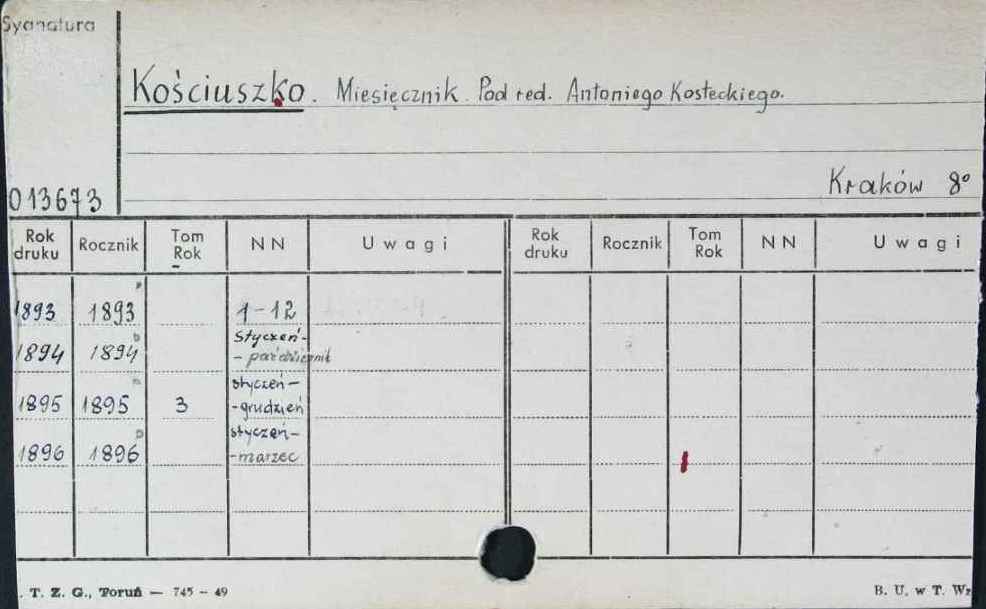 Sygnatura
Kościuszko. Miesięcznik. Pod red. Antoniego Kosteckiego.
013673
Kraków 8°
Rok druku Rocznik Tom Rok NN Uwagi Rok druku Rocznik Tom Rok NN Uwagi
1893 1893 1-12
1894 1894 styczeń- -październik
1895 1895 3 styczeń- -grudzień
1896 1896 styczeń- -marzec
. T. Z. G., Toruń — 745 – 49
B. U. w T. Wz